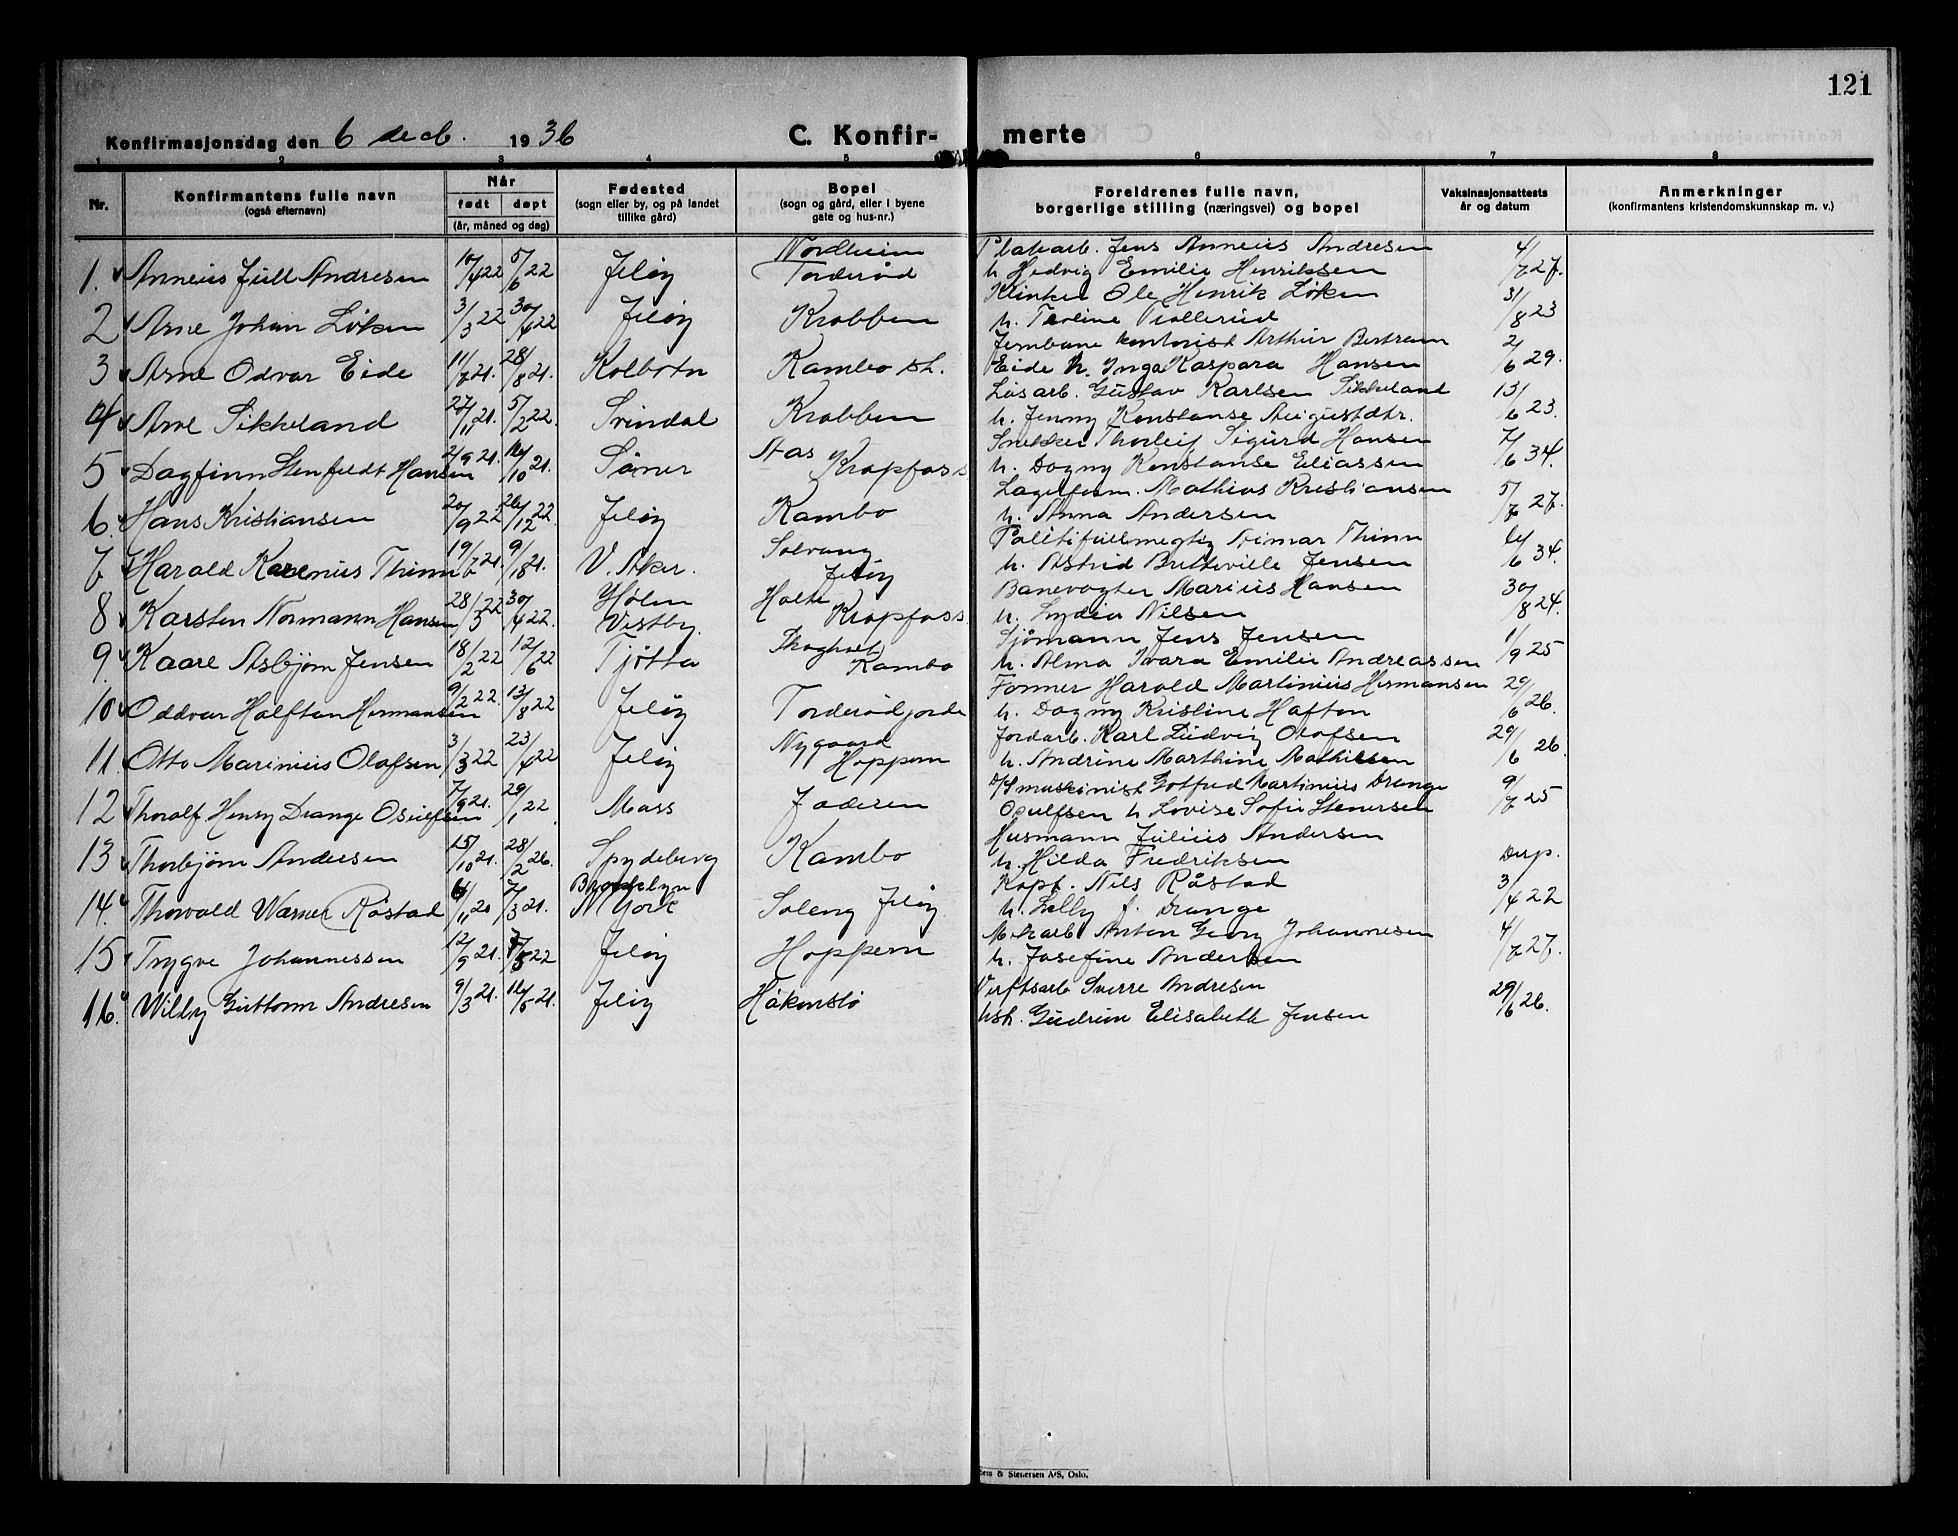 121
Konfirmasjonsdag den 6 decb. 1936
C. Konfir- merte
1 2 3 4 5 6 7 8
Nr. Konfirmantens fulle navn (også efternavn) Når født døpt (år, måned og dag) Fødested (sogn eller by, og på landet tillike gård) Bopel (sogn og gård, eller i byene gate og hus-nr.) Foreldrenes fulle navn, borgerlige stilling (næringsvei) og bopel Vaksinasjonsattests år og datum Anmerkninger (konfirmantens kristendomskunnskap m. v.)
1. Anneus Juell Andresen 10/4 22 5/6 22 Jeløy Nordheim Torderød Jens Anneus Andresen 4/7 27.
h. Hedvig Emilie Henriksen
2 Arne Johan Løken 3/3 22 30/4 22 Jeløy Krabben Klinker Ole Henrik Løken 31/8 23
h. Teoline Tollerud
3 Arne Odvar Eide 11/7 21. 28/8 21. Kolbotn Kambo st. Jernbane kontorist Arthur Bertram 2/6 29.
Eide h. Inga Kaspara Hansen
4 Arve Sikkeland 27/11 21. 5/2 22. Svindal Krabben Løsarb. Gustav Karlsen Sikkeland 13/6 23.
h. Jenny Konstanse Augustdtr.
5 Dagfinn Stenfeldt Hansen 2/9 21. 16/10 21. Såner Aas Kropfoss Snekker Thorleif Sigurd Hansen 7/6 34.
h. Dagny Konstanse Eliassen
6 Hans Kristiansen 20/9 22 26/12 22 Jeløy Kambo Lagerform. Mathias Kristiansen 5/7 27.
h. Anna Andersen
7 Harald Karenius Thinn 19/7 21. 9/10 21. V. Aker. Solvang Jeløy Politifullmegtig Thinn 14/6 34.
h. Astrid Jensen
8 Karsten Normann Hansen 28/3 22 30/4 22. Hølen Vestby. Holte Kropfoss Banevogter Marius Hansen 30/8 24.
h. Lydia Nilsen
9. Kaare Asbjørn Jensen 18/2 22 12/6 22 Tjøtta Skogholt Kambo Sjømann Jens Jensen 1/9 25
h. Alma Ivara Emilie Andreassen
10 Oddvar Halften Hermansen 9/2 22. 13/8 22 Jeløy Torderødjorde Former Harald Martinius Hermansen 29/6 26.
h. Dagny Kristine Haften
11. Otto Marinius Olafsen 3/3 22 23/4 22 Jeløy Nygaard Hoppern Jordarb. Karl Ludvig Olafsen 29/6 26.
h. Andrine Marthine Mathiesen
12 Thoralf Henry Drange Osulfsen 7/9 21. 29/1 22 Moss Jaderen D/Smaskinist Gotfred Martinius Drange 9/7 25
Osulfsen h Lovise Sofie Stenersen
13 Thorbjørn Andersen 15/10 21. 28/2 26. Spydeberg Kambo Husmann Julius Andersen Disp.
h. Hilda Fredriksen
14. Thorvald Warner Røstad 6/11 20 7/3 21. Brooklyn N York Soleng Jeløy Kapt. Nils Røstad 3/4 22
h. Lelly f. Drange
15 Trygve Johannessen 12/9 21. 7/5 22 Jeløy Hoppern Mekarb Anton Georg Johannesen 4/7 27.
h. Josefine Andersen
16. Willy Guttorm Andresen 9/3 21. 16/5 21. Jeløy Håkenslø Verftsarb Sverre Andresen 29/6 26.
hst. Gudrun Elisabeth Jensen
& Stenersen A/S, Oslo.